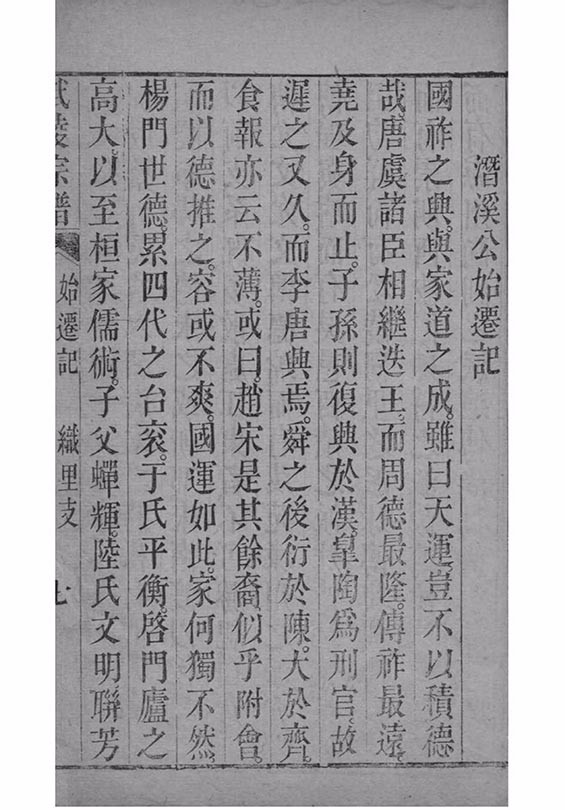 潛溪公始遷記
國祚之興與家道之成雖曰天運豈不以積德
哉唐虞諸臣相繼迭王而周德最隆傳祚最遠
堯及身而止子孫則復興於漢皐陶為刑官故
遲之又久而李唐興焉舜之後衍於陳大於齊
食報亦云不薄或曰趙宋是其餘裔似乎附會
而以德推之容或不爽國運如此家何獨不然
楊門世德累四代之台衮于氏平衡啓門廬之
高大以至桓家儒術子父蟬輝陸氏文明聯芳
陵宗譜 始遷記 織里支 七